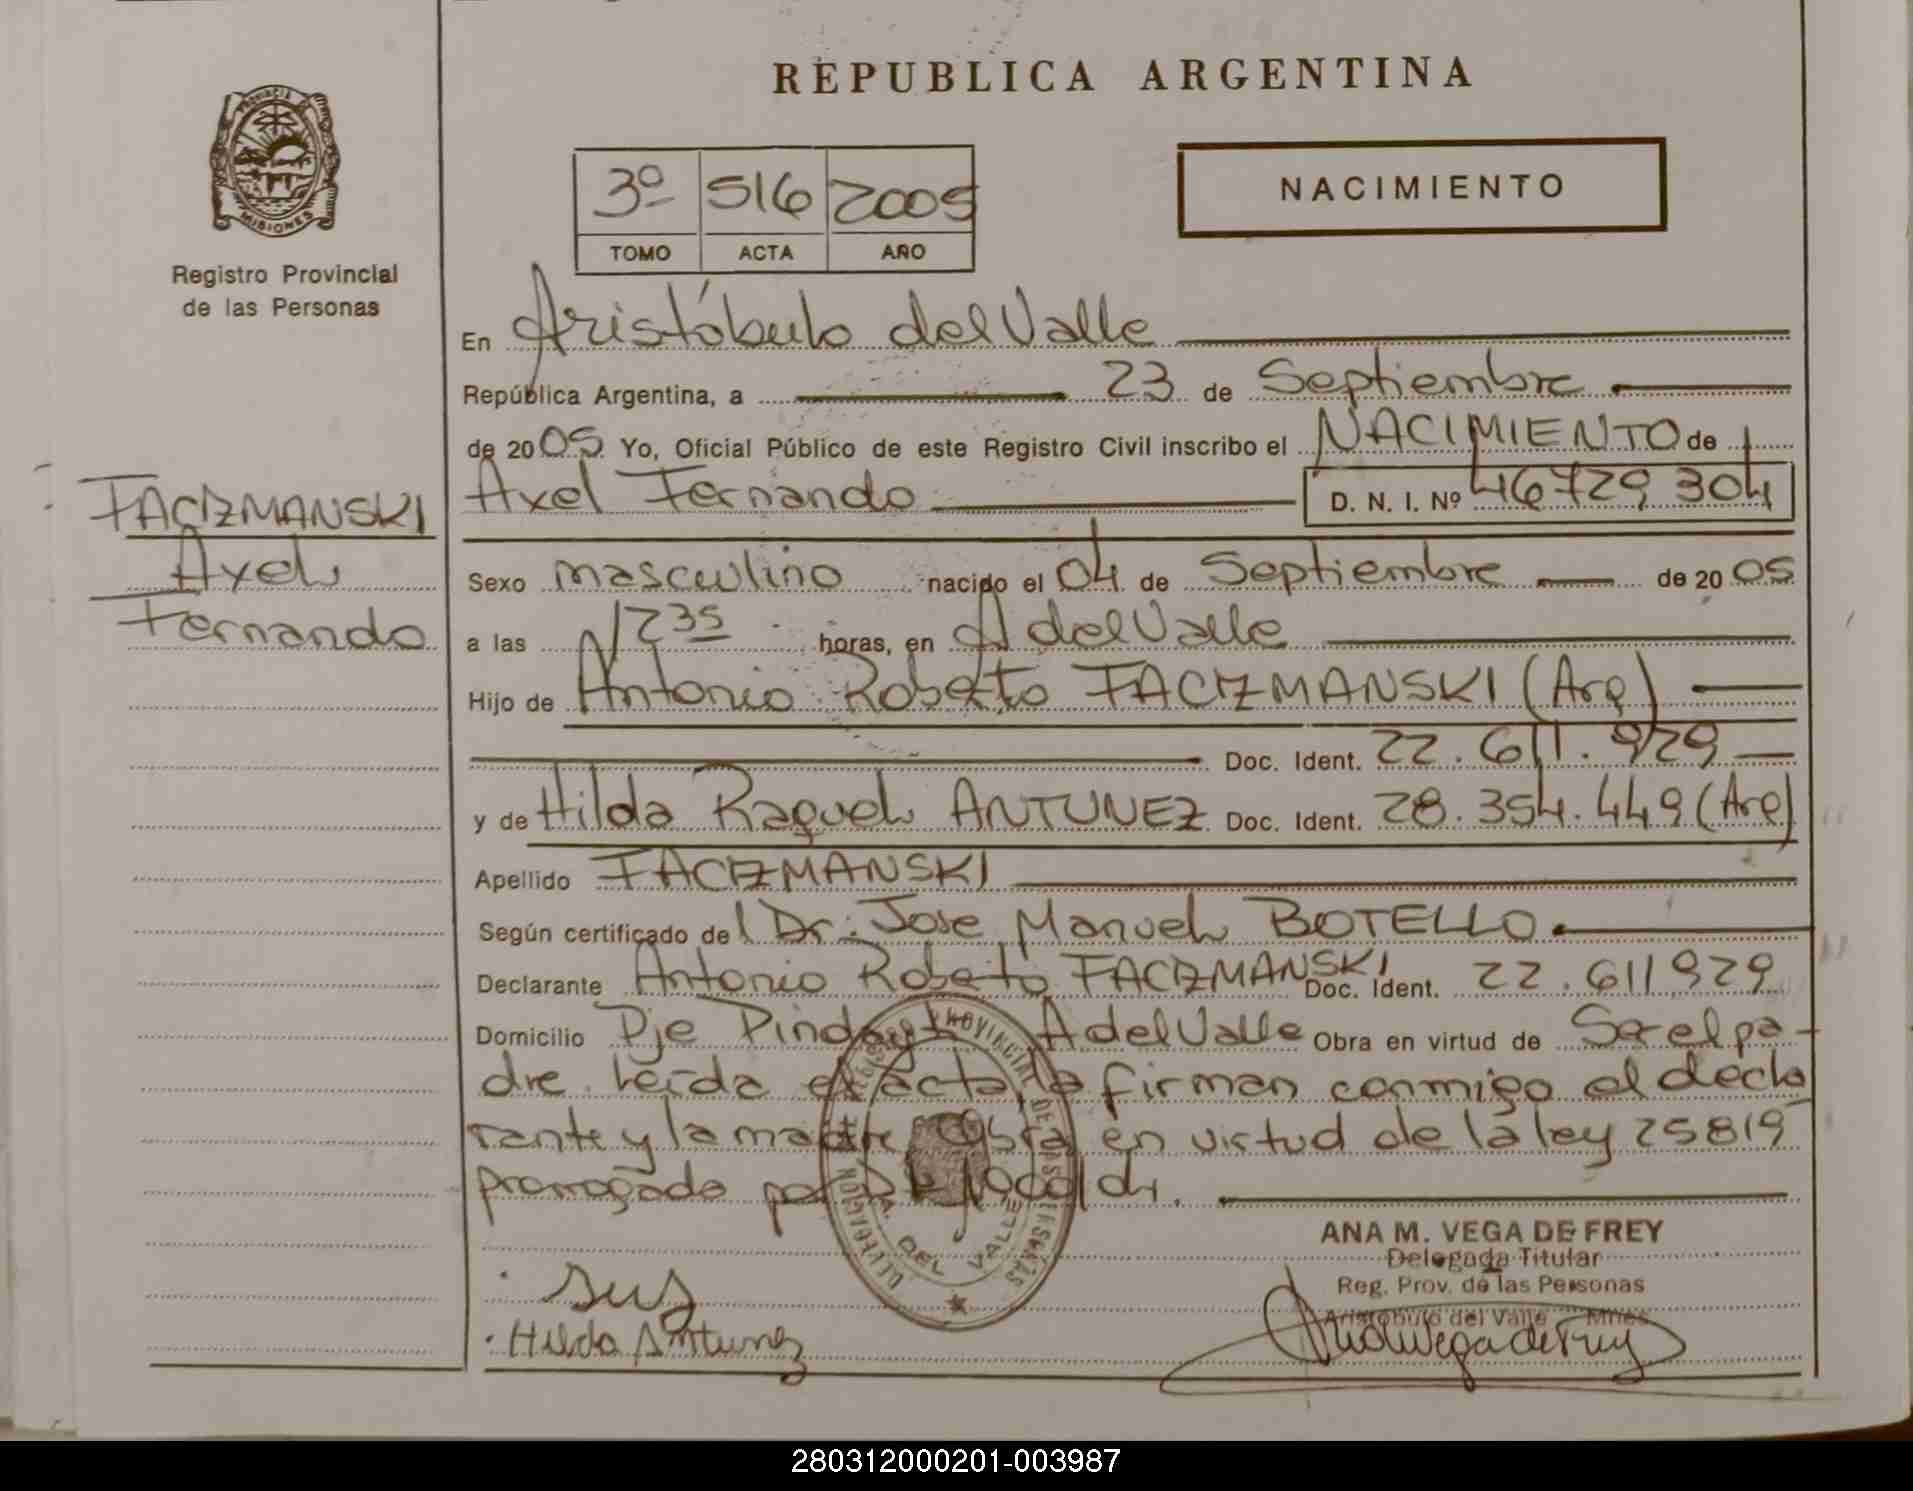 REPUBLICA ARGENTINA
PROVINCIA
MISIONES
Registro Provincial
de las Personas
3º 516 2005
TOMO ACTA AÑO
NACIMIENTO
En Aristóbulo del Valle
República Argentina, a 23 de Septiembre
de 2005. Yo, Oficial Público de este Registro Civil inscribo el NACIMIENTO de
Axel Fernando D. N. I. Nº 46729304
FACZMANSKI
Axel
Fernando
Sexo masculino nacido el 04 de Septiembre de 2005
a las 1235 horas, en A del Valle
Hijo de Antonio Roberto FACZMANSKI (Arg)
Doc. Ident. 22.611.929
y de Hilda Raquel ANTUNEZ Doc. Ident. 28.354.449 (Arg)
Apellido FACZMANSKI
Según certificado del Dr. Jose Manuel BOTELLO
Declarante Antonio Roberto FACZMANSKI Doc. Ident. 22.611929
Domicilio Pje Pindayti A del Valle Obra en virtud de Ser el pa-
dre. Leída el acta, la firman conmigo el decla
rante y la madre Obra en virtud de la ley 25819
prorrogada por
REGISTRO PROVINCIAL DE LAS PERSONAS
DELEGACION
A. DEL VALLE
ANA M. VEGA DE FREY
Delegada Titular
Reg. Prov. de las Personas
Aristóbulo del Valle Mnes
Hilda Antunez
Ana Vega de Frey
280312000201-003987